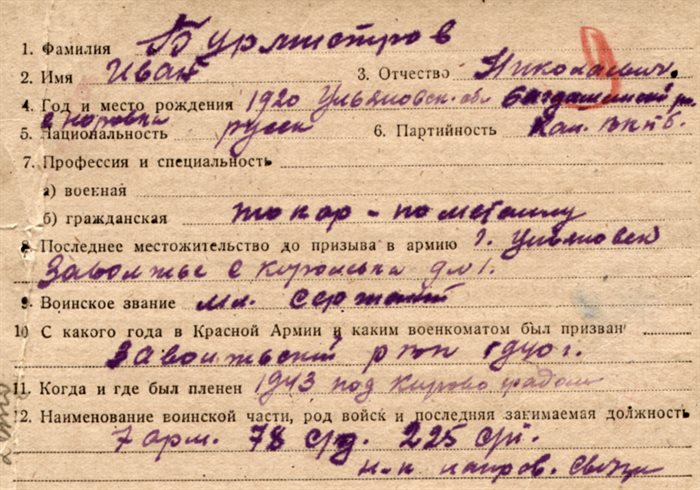 1. Фамилия Бурмистров
2. Имя Иван 3. Отчество Николаевич
4. Год и место рождения 1920 Ульяновск. обл
5. Национальность русск 6. Партийность Кан. ВКПб.
7. Профессия и специальность
а) военная
б) гражданская токар - по металлу
8. Последнее местожительство до призыва в армию г. Ульяновск
Заволжье
9. Воинское звание мл. сержант
10. С какого года в Красной Армии и каким военкоматом был призван
Заволжский 1940 г.
11. Когда и где был пленен 1943 под Кировоградом
12. Наименование воинской части, род войск и последняя занимаемая должность
7 арм. 78 сд. 225 сп.
н-к направ. связи